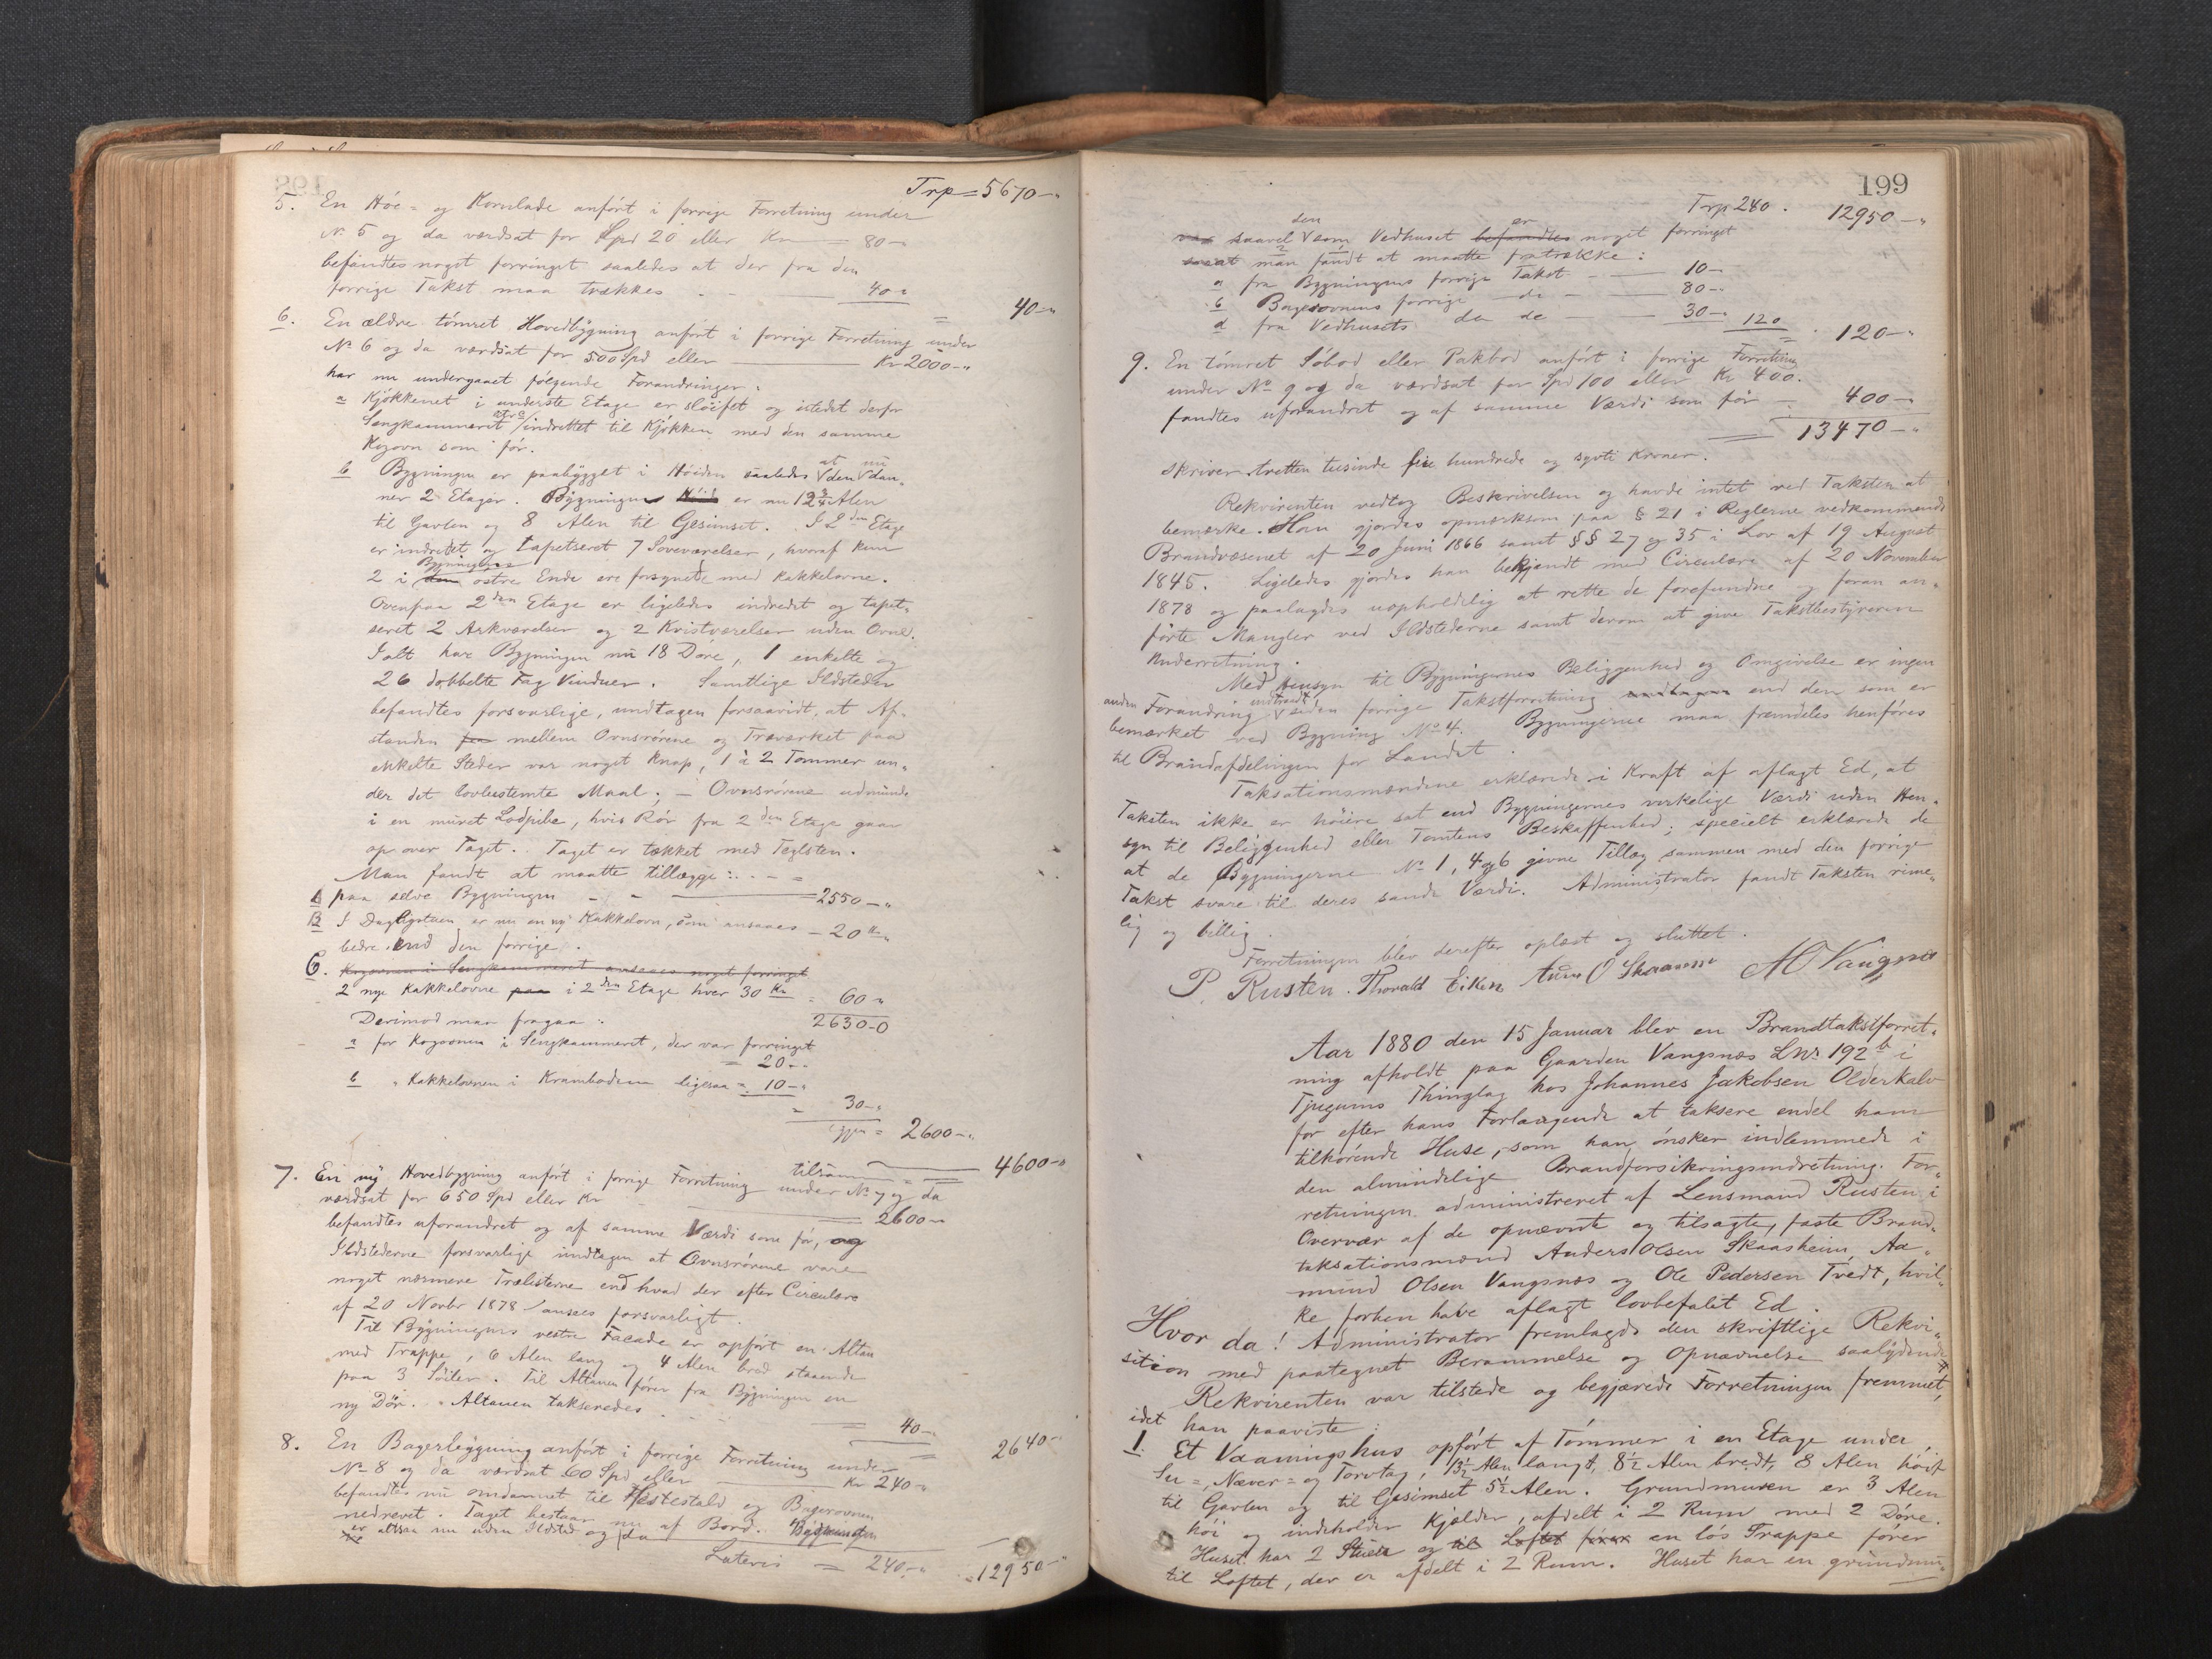 Trp = 5670 - "
5. En Höe- og Kornlade anfört i forrige Forretning under
No 5 og da værdsat for Spd 20 eller Kr — 80 -
befandtes noget forringet saaledes at der fra den
forrige Takst maa trækkes . — 40 - "
= 40 - "
6. En ældre tömret Hovedbygning anfört i forrige Forretning under
No 6 og da værdsat for 500 Spd eller — Kr 2000 - "
har nu undergaaet fölgende Forandringer:
a Kjökkenet i underste Etage er slöifet og istedet derfor
Sengkammeret indrettet til Kjökken med den samme
Kogovn som för.
b Bygningen er paabygget i Höiden saaledes at den nu dan-
ner 2 Etager. Bygningen Höide er nu 12 3/4 Alen
til Gavlen og 8 Alen til Gesimset. I 2den Etage
er indredet og tapetseret 7 Soveværelser, hvoraf kun
2 i den Bygningens östre Ende ere forsynede med Kakkelovne.
Ovenpaa 2den Etage er ligeledes indredet og tapet-
seret 2 Arkværelser og 2 Kvistværelser uden Ovne.
Ialt har Bygningen nu 18 Döre, 1 enkelte og
26 dobbelte Fag Vinduer. Samtlige Ildsteder
befandtes forsvarlige, undtagen forsaavidt, at Af-
standen fra mellem Ovnsrörene og Træværket paa
enkelte Steder var noget knap, 1 à 2 Tommer un-
der det lovbestemte Maal; - Ovnsrörene udmunde
i en muret Lodpibe, hvis Rör fra 2den Etage gaar
op over Taget. Taget er tækket med Teglsten.
Man fandt at maatte tillægge: . - - =
A paa selve Bygningen - - — = 2550 - "
B I Dagligstuen er nu en ny Kakkelovn, som ansaaes — 20 "
bedre end den forrige.
C. Kogovnen i Sengkammeret ansaaes noget forringet
2 nye Kakkelovne paa i 2den Etage hver 30 Kr = 60 "
2630 - 0
Derimod maa fragaa:
a for Kogovnen i Sengkammeret, der var forringet
= 20 - "
b " Kakkelovnen i Krambodene ligesaa = 10 - "
= 30 - "
igjen = 2600 - "
tilsammen = 4600 - "
7. En ny Hovedbygning anfört i forrige Forretning under No 7 og da
værdsat for 650 Spd eller Kr — 2600 -
befandtes uforandret og af samme Værdi som för, og
Ildstederne forsvarlige undtagen at Ovnsrörene vare
noget nærmere Trælisterne end hvad der efter Circulære
af 20 Novbr 1878 ansees forsvarligt.
Til Bygningens vestre Facade er opfört en Altan
med Trappe, 6 Alen lang og 4 Alen bred staaende
paa 3 Söiler. Til Altanen förer fra Bygningen en
ny Dör. Altanen takseredes . = 40 -
= 2640 -
8. En Bagerbygning anfört i forrige Forretning under
No 8 og da værdsat 60 Spd eller — Kr 240 - "
befandtes nu omdannet til Hestestald og Bagerovnen
nedrevet. Taget bestaar nu af Bord. Bygningen
er altsaa nu uden Ildsted og da
Lateris = 240 - " = 12950 - "
199
Trp 240. 12950 - "
var saavel den som Vedhuset befandtes er noget forringet
saa at man fandt at maatte fratrække:
a fra Bygningens forrige Takst — 10 -
b Bagerovnens forrige do — 80 -
d fra Vedhusets do do — 30 - 120
= 120 - "
9. En tömret Söbod eller Pakbod anfört i forrige Forretning
under No 9 og da værdsat for Spd 100 eller Kr 400.
fandtes uforandret og af samme Værdi som för — 400 -
= 13470 - "
skriver tretten tusinde fire hundrede og sytti Kroner.
Rekvirenten vedtog Beskrivelsen og havde intet ved Taksten at
bemærke. Han gjordes opmærksom paa § 21 i Reglerne vedkommende
Brandvæsenet af 20 Juni 1866 samt §§ 27 og 35 i Lov af 19 August
1845. Ligeledes gjordes han bekjendt med Circulære af 20 November
1878 og paalagdes uopholdelig at rette de forefundne og foran an-
förte Mangler ved Ildstederne samt derom at give Takstbestyreren
Underretning.
Med Hensyn til Bygningernes Beliggenhed og Omgivelse er ingen
anden Forandring indtraadt siden forrige Takstforretning undtagen end den som er
bemærket ved Bygning No 4. Bygningerne maa fremdeles henföres
til Brandafdelingen for Landet.
Taksationsmændene erklærede i Kraft af aflagt Ed, at
Taksten ikke er höiere sat end Bygningernes virkelige Værdi uden Hen-
syn til Beliggenhed eller Tomtens Beskaffenhed; specielt erklærede de
at de Bygningerne No 1, 4 og 6 givne Tillæg sammen med den forrige
Takst svare til deres sande Værdi. Administrator fandt Taksten rime-
lig og billig.
Forretningen blev derefter oplæst og sluttet.
P. Rusten. Thorald Eiken M O Vangsnes
Aar 1880 den 15 Januar blev en Brandtakstforret-
ning afholdt paa Gaarden Vangsnæs LNr 192 b i
Tjugums Thinglag hos Johannes Jakobsen Olderkalv
for efter hans Forlangende at taksere endel ham
tilhörende Huse, som han önsker indlemmede i
den almindelige Brandforsikringsindretning. For-
retningen administreret af Lensmand Rusten i
Overvær af de opnævnte og tilsagte, faste Brand-
taksationsmænd Anders Olsen Skaasheim, Aa-
mund Olsen Vangsnæs og Ole Pedersen Tvedt, hvil-
ke forhen have aflagt lovbefalet Ed.
Hvor da! Administrator fremlagde den skriftlige Rekvi-
sition med paategnet Berammelse og Opnævnelse saalydende
Rekvirenten var tilstede og begjærede Forretningen fremmet,
idet han paaviste:
1. Et Vaaningshus opfört af Tömmer i en Etage under
Su-, Næver- og Torvtag, 13 1/2 Alen langt, 8 1/2 Alen bredt, 8 Alen höit
til Gavlen og til Gesimset 5 1/2 Alen. Grundmuren er 3 Alen
höi og indeholder Kjælder, afdelt i 2 Rum med 2 Döre.
Huset har 2 Stuer og til Loftet förer en lös Trappe förer
til Loftet, der er afdelt i 2 Rum. Huset har en grundmu-